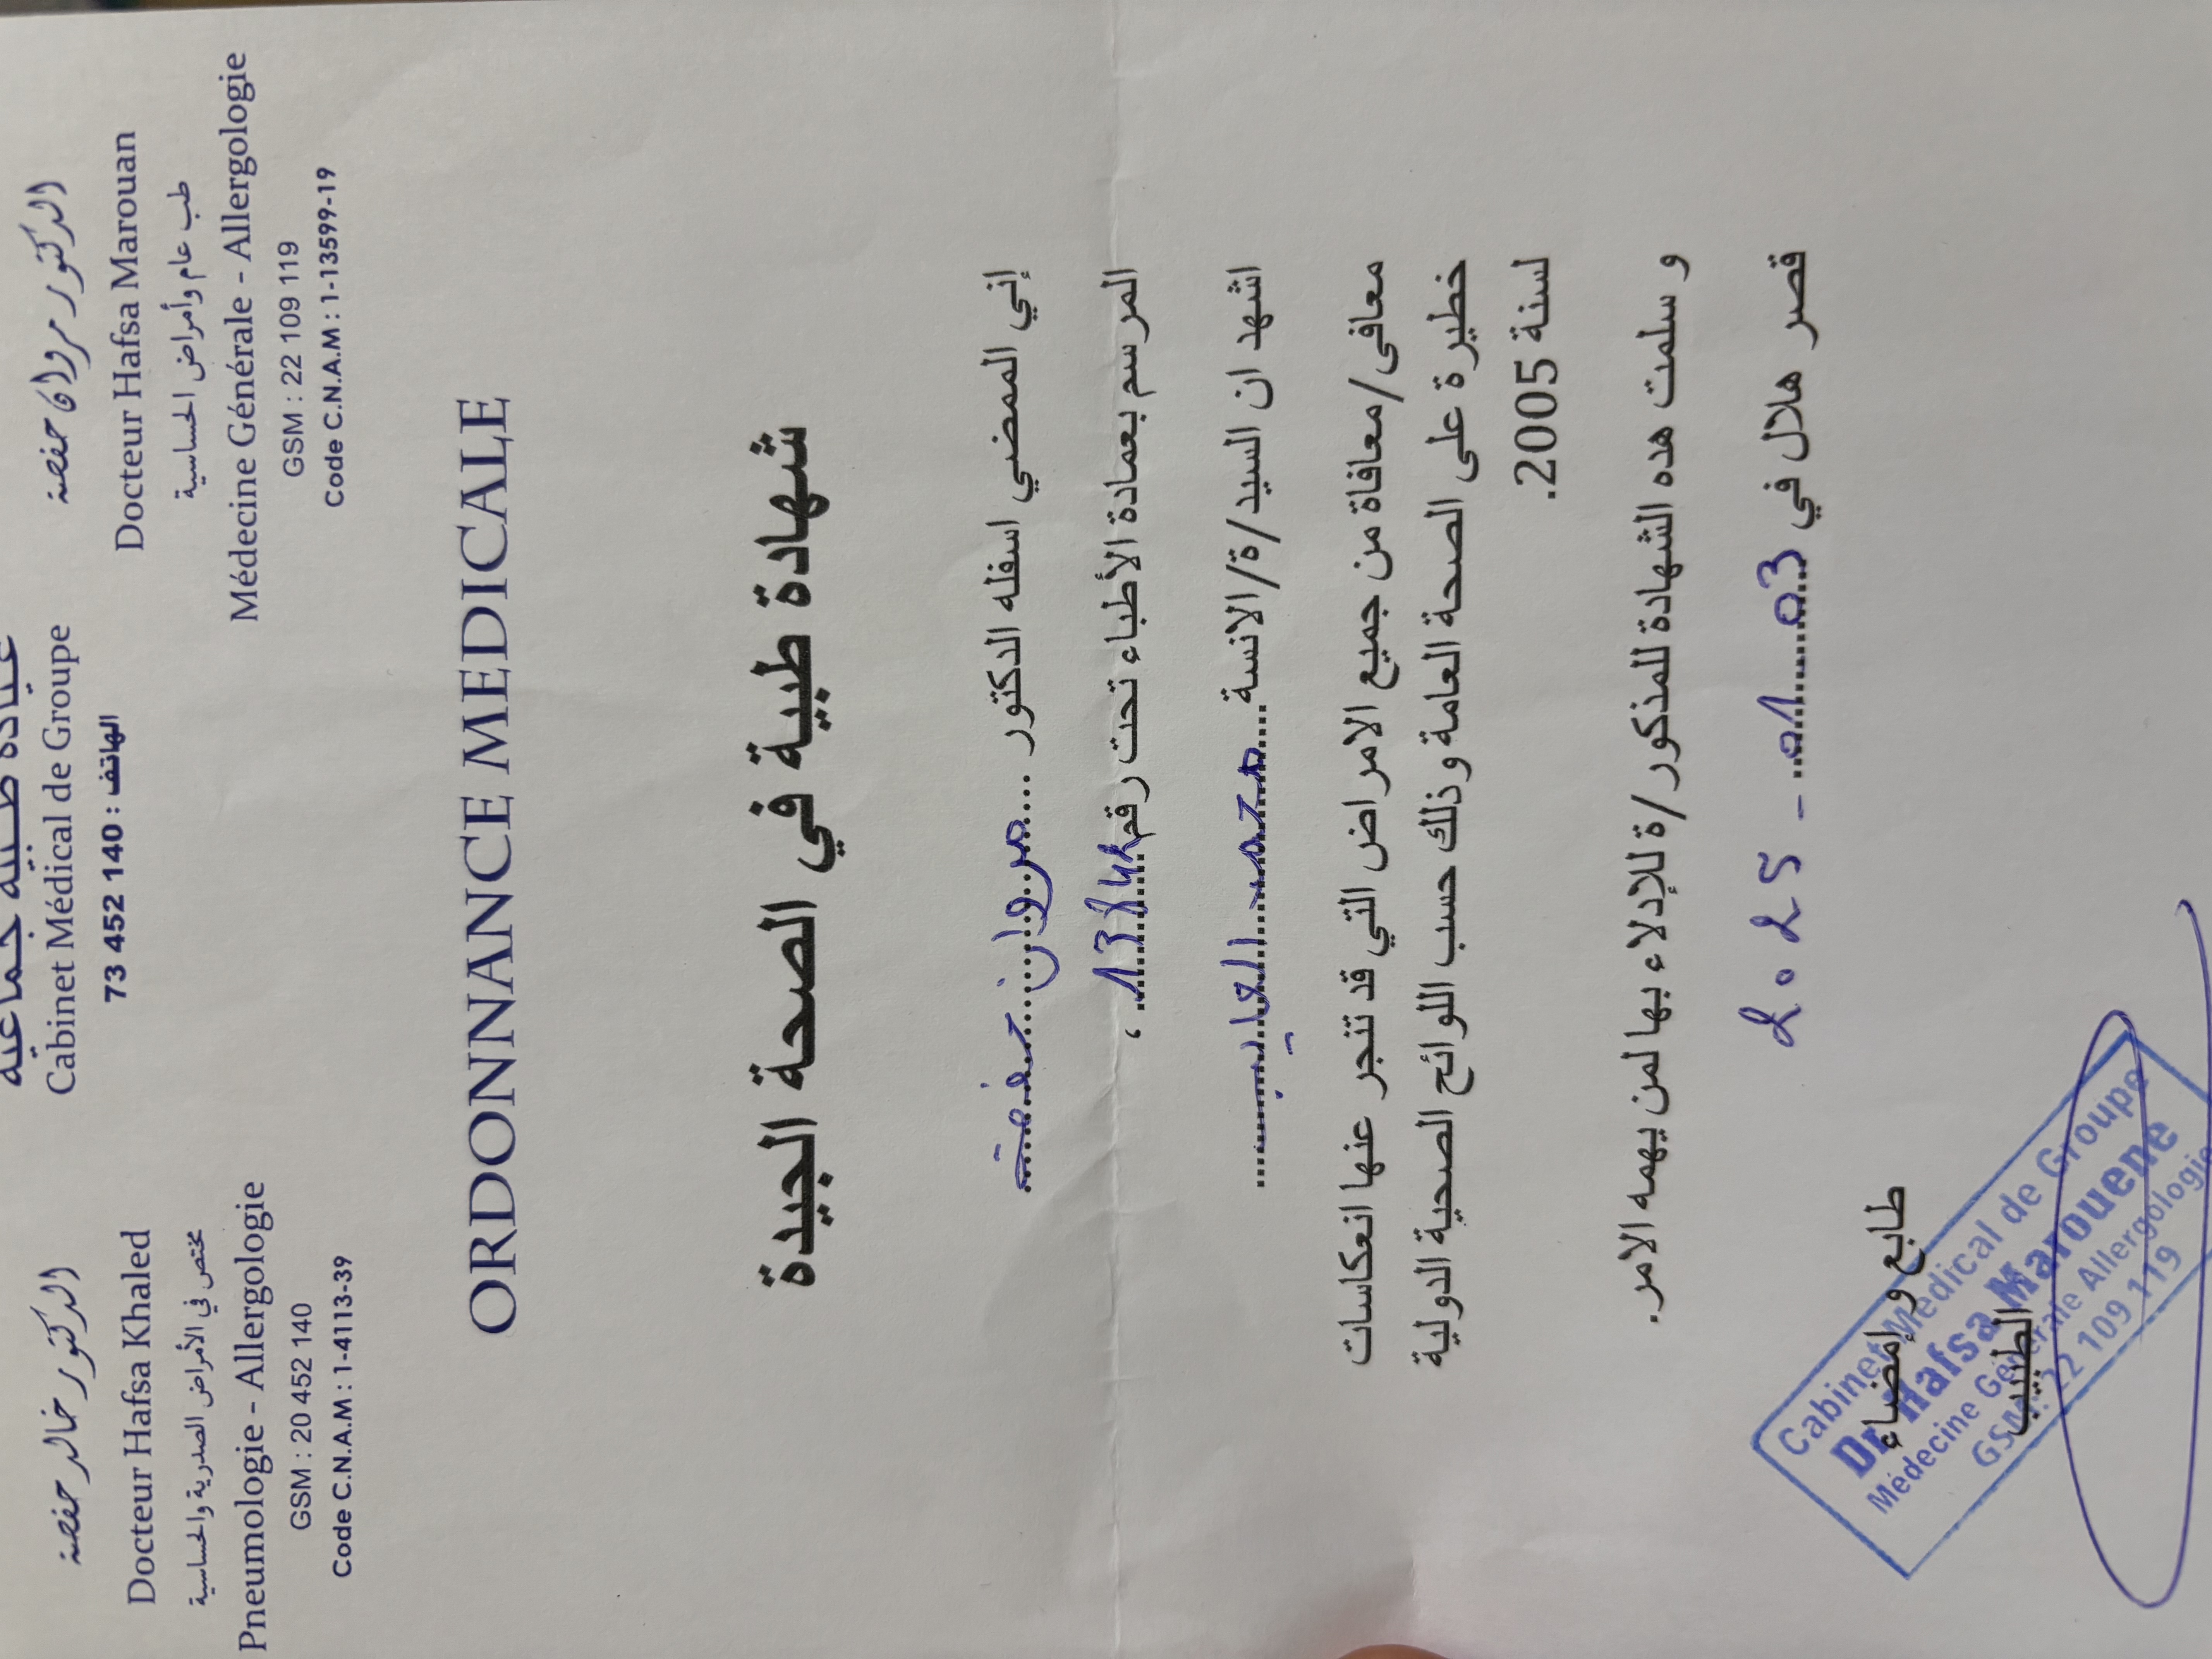 عيادة طبية جماعية
Cabinet Médical de Groupe
الهاتف : 140 452 73
الدكتور مروان حفصة
Docteur Hafsa Marouan
طب عام وأمراض الحساسية
Médecine Générale - Allergologie
GSM : 22 109 119
Code C.N.A.M : 1-13599-19
الدكتور خالد حفصة
Docteur Hafsa Khaled
مختص في الأمراض الصدرية والحساسية
Pneumologie - Allergologie
GSM : 20 452 140
Code C.N.A.M : 1-4113-39
ORDONNANCE MEDICALE
شهادة طبية في الصحة الجيدة
إني الممضي اسفله الدكتور .... مروان حفصة
المرسم بعمادة الأطباء تحت رقم ،
اشهد ان السيد/ة/الانسة.... محمد
معافى/معافاة من جميع الامراض التي قد تنجر عنها انعكاسات
خطيرة على الصحة العامة وذلك حسب اللوائح الصحية الدولية
لسنة 2005.
و سلمت هده الشهادة للمذكور/ة للإدلاء بها لمن يهمه الامر.
قصر هلال في 03 01 - 2025
طابع و إمضاء
الطبيب
Cabinet Médical de Groupe
Dr Hafsa Marouene
Médecine Générale Allergologie
GSM: 22 109 119